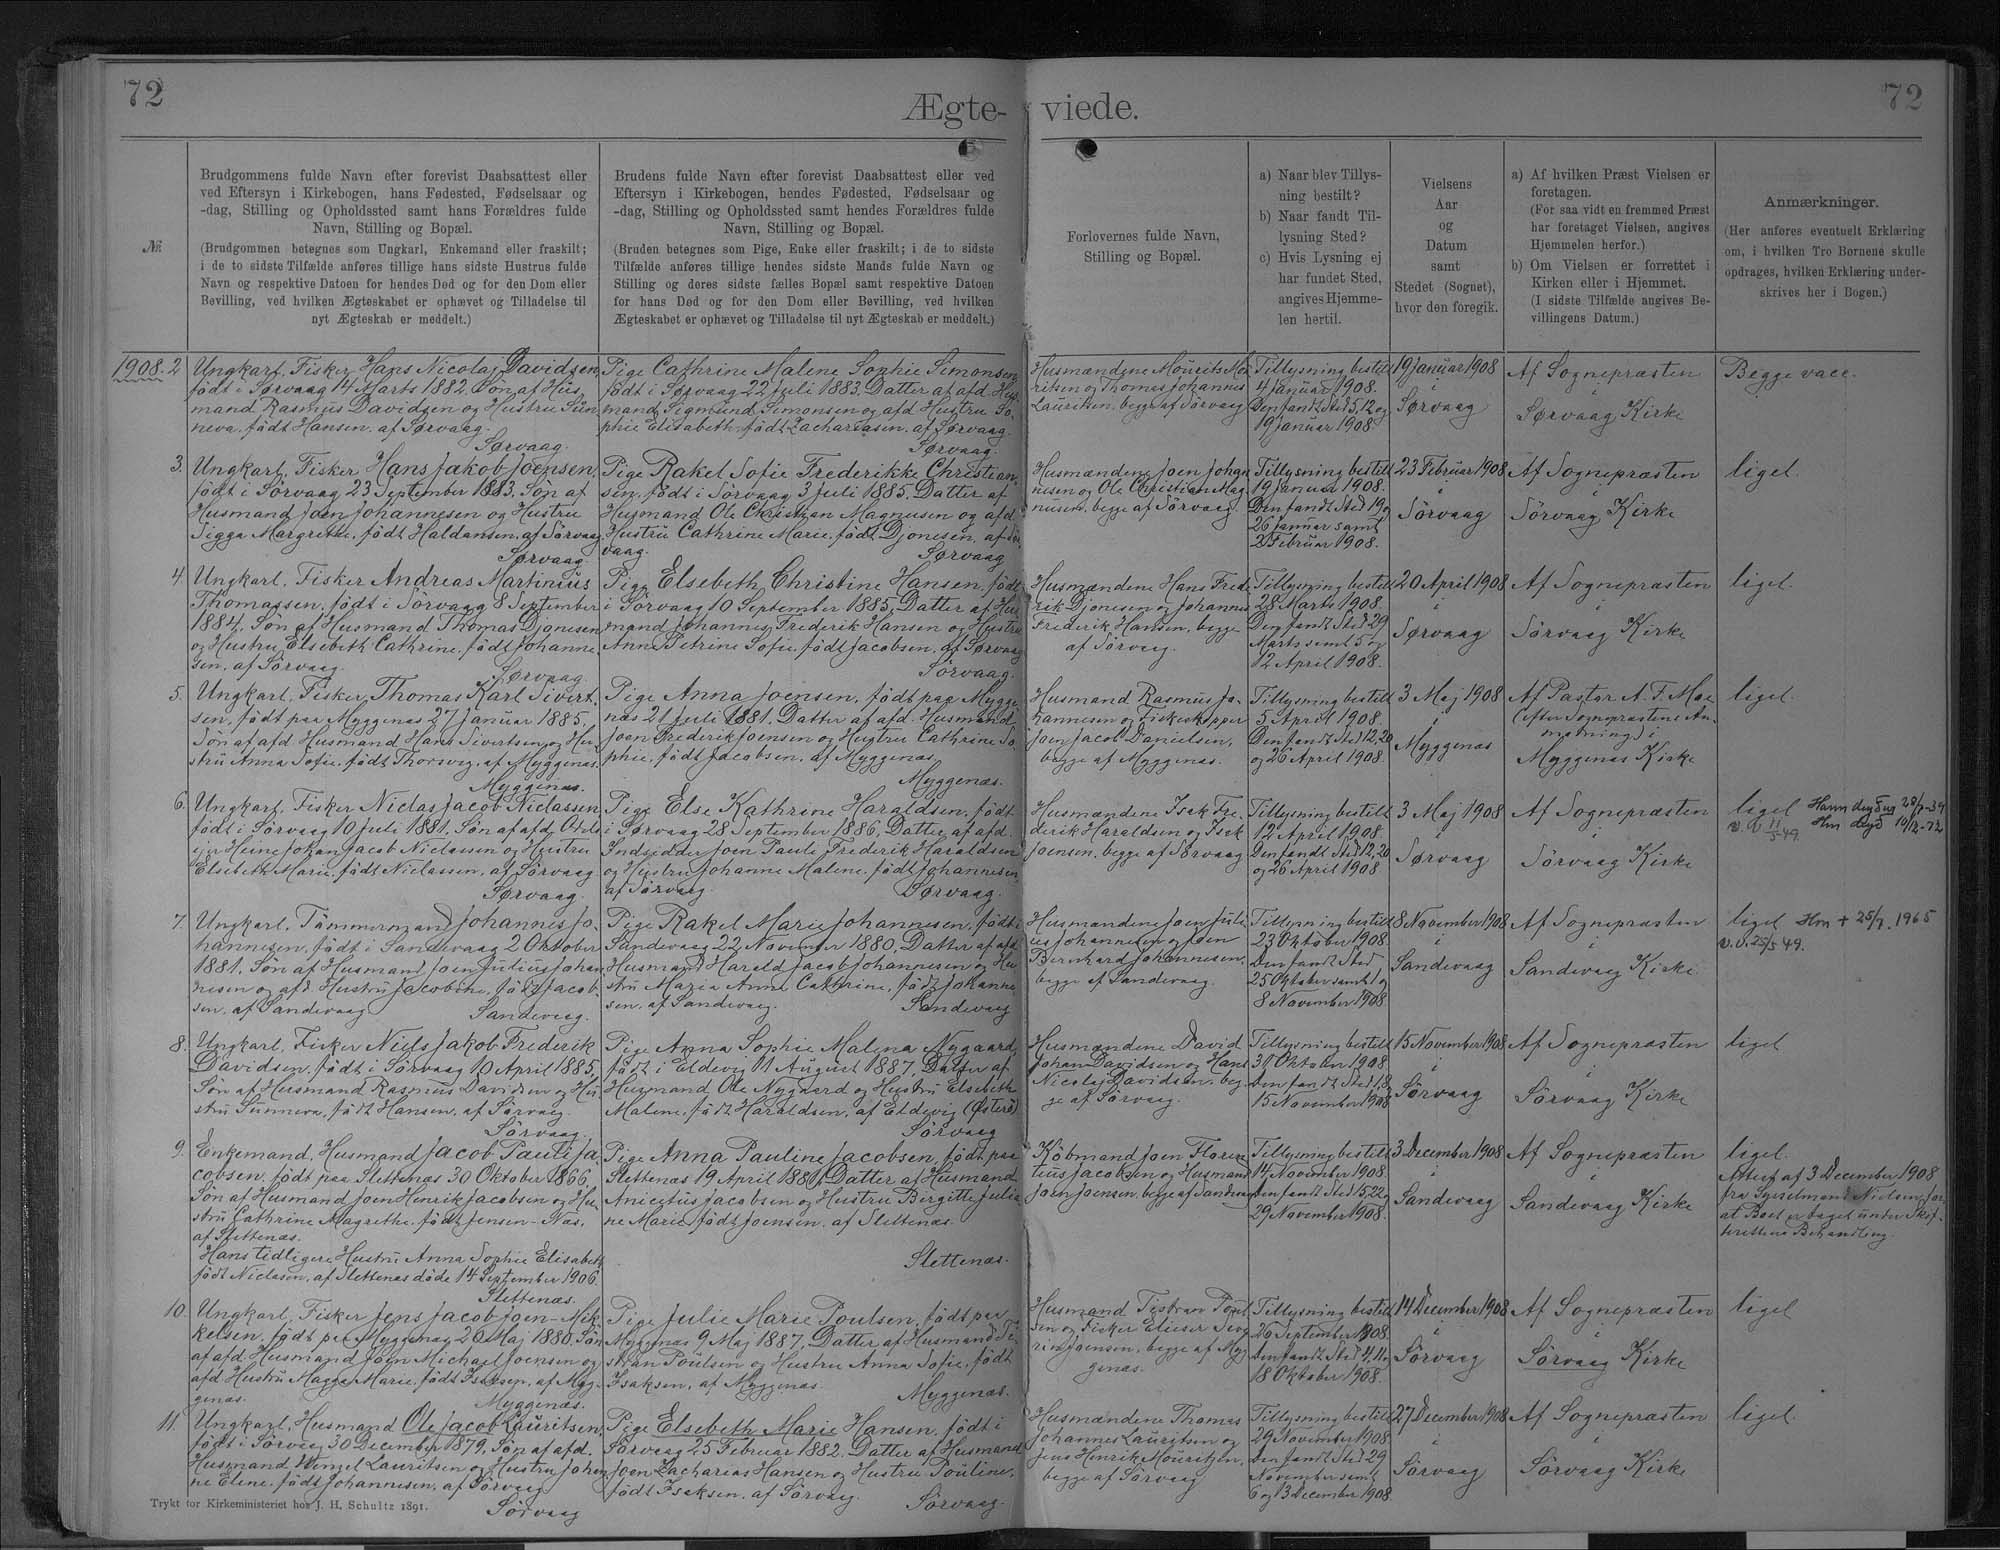 72
Ægte-
viede.
72
№
Brudgommens fulde Navn efter forevist Daabsattest eller
ved Eftersyn i Kirkebogen, hans Fødested, Fødselsaar og
-dag, Stilling og Opholdssted samt hans Forældres fulde
Navn, Stilling og Bopæl.
(Brudgommen betegnes som Ungkarl, Enkemand eller fraskilt;
i de to sidste Tilfælde anføres tillige hans sidste Hustrus fulde
Navn og respektive Datoen for hendes Død og for den Dom eller
Bevilling, ved hvilken Ægteskabet er ophævet og Tilladelse til
nyt Ægteskab er meddelt.)
Brudens fulde Navn efter forevist Daabsattest eller ved
Eftersyn i Kirkebogen, hendes Fødested, Fødselsaar og
-dag, Stilling og Opholdssted samt hendes Forældres fulde
Navn, Stilling og Bopæl.
(Bruden betegnes som Pige, Enke eller fraskilt; i de to sidste
Tilfælde anføres tillige hendes sidste Mands fulde Navn og
Stilling og deres sidste fælles Bopæl samt respektive Datoen
for hans Død og for den Dom eller Bevilling, ved hvilken
Ægteskabet er ophævet og Tilladelse til nyt Ægteskab er meddelt.)
Forlovernes fulde Navn,
Stilling og Bopæl.
a) Naar blev Tillys-
ning bestilt?
b) Naar fandt Til-
lysning Sted?
c) Hvis Lysning ej
har fundet Sted,
angives Hjemme-
len hertil.
Vielsens
Aar
og
Datum
samt
Stedet (Sognet),
hvor den foregik.
a) Af hvilken Præst Vielsen er
foretagen.
(For saa vidt en fremmed Præst
har foretaget Vielsen, angives
Hjemmelen herfor.)
b) Om Vielsen er forrettet i
Kirken eller i Hjemmet.
(I sidste Tilfælde angives Be-
villingens Datum.)
Anmærkninger.
(Her anføres eventuelt Erklæring
om, i hvilken Tro Børnene skulle
opdrages, hvilken Erklæring under-
skrives her i Bogen.)
1908. 2
Ungkarl, Fisker Hans Nicolaj Davidsen,
født i Sørvaag 14 Marts 1882. Søn af Hus
mand Rasmus Davidsen og Hustru Sun
neva, født Hansen, af Sørvaag.
Sørvaag.
Pige Cathrine Malene Sophie Simonsen
født i Sørvaag 22 Juli 1883. Datter af afd. Hus
mand Sigmund Simonsen og afd. Hustru So
phie Elisabeth, født Zachariasen, af Sørvaag.
Sørvaag.
Husmændene Mourits Mou
ritsen og Thomas Johannes
Lauritsen, begge af Sørvaag
Tillysning bestilt
4 Januar 1908.
Den fandt Sted 5, 12 og
19 Januar 1908.
19 Januar 1908
i
Sørvaag
Af Sognepræsten
i
Sørvaag Kirke
Begge vacc.
3.
Ungkarl, Fisker Hans Jakob Joensen,
født i Sörvaag 23 September 1883. Søn af
Husmand Joen Johannesen og Hustru
Sigga Margrethe, født Haldansen, af Sörvaag
Sørvaag.
Pige Rakel Sofie Frederikke Christian
sen, født i Sörvaag 3 Juli 1885. Datter af
Husmand Ole Christian Magnusen og afd.
Hustru Cathrine Marie, født Djonesen, af Sör
vaag.
Sørvaag
Husmændene Joen Johan
nesen og Ole Christian Mag
nusen, begge af Sörvaag
Tillysning bestilt
19 Januar 1908.
Den fandt Sted 19 og
26 Januar samt
2 Februar 1908.
23 Februar 1908
i
Sørvaag
Af Sognepræsten
i
Sörvaag Kirke
ligel.
4.
Ungkarl, Fisker Andreas Martinius
Thomassen, født i Sörvaag 8 September
1884. Søn af Husmand Thomas Djonesen
og Hustru Elsebeth Cathrine, født Johanne
sen, af Sørvaag.
Sørvaag
Pige Elsebeth Christine Hansen, født
i Sørvaag 10 September 1885. Datter af Hus
mand Johannes Frederik Hansen og Hustru
Anne Petrine Sofie, født Jacobsen, af Sørvaag
Sörvaag.
Husmændene Hans Frede
rik Djonesen og Johannes
Frederik Hansen, begge
af Sörvaag.
Tillysning bestilt
28 Marts 1908.
Den fandt Sted 29
Marts samt 5 og
12 April 1908.
20 April 1908
i
Sørvaag
Af Sognepræsten
i
Sörvaag Kirke
ligel.
5.
Ungkarl, Fisker Thomas Karl Sivert
sen, født paa Myggenæs 27 Januar 1885.
Søn af afd. Husmand Hans Sivertsen og Hu
stru Anna Sofie, født Thorsvig, af Myggenæs.
Myggenæs.
Pige Anna Joensen, født paa Mygge
næs 21 Juli 1881. Datter af afd. Husmand
Joen Frederik Joensen og Hustru Cathrine So
phie, født Jacobsen, af Myggenæs
Myggenæs.
Husmand Rasmus Jo-
hannesen og Fiskeskipper
Joen Jacob Danielsen,
begge af Myggenæs.
Tillysning bestilt
5 April 1908.
Den fandt Sted 12, 20
og 26 April 1908.
3 Maj 1908
i
Myggenæs
Af Pastor A. F. Moe
(efter Sognepræstens An-
modning) i
Myggenæs Kirke
ligel.
6.
Ungkarl, Fisker Niclas Jacob Niclassen
født i Sörvaag 10 Juli 1881. Søn af afd. Odels
ejer Heine Johan Jacob Niclassen og Hustru
Elsebeth Marie, født Niclassen, af Sörvaag
Sørvaag.
Pige Else Kathrine Haraldsen, født
i Sørvaag 28 September 1886, Datter af afd.
Indsidder Joen Pauli Frederik Haraldsen
og Hustru Johanne Malene, født Johannesen,
af Sörvaag.
Sørvaag.
Husmændene Isak Fre-
derik Haraldsen og Isak
Joensen, begge af Sørvaag
Tillysning bestilt
12 April 1908.
Den fandt Sted 12, 20
og 26 April 1908
3 Maj 1908
i
Sørvaag
Af Sognepræsten
i
Sörvaag Kirke
ligel
7.
Ungkarl, Tømmermand Johannes Jo-
hannesen, født i Sandevaag 2 Oktober
1881. Søn af Husmand Joen Julius Johan
nesen og afd. Hustru Jacobine, født Jacob-
sen, af Sandevaag
Sandevaag.
Pige Rakel Marie Johannesen, født i
Sandevaag 22 November 1880. Datter af afd.
Husmand Harald Jacob Johannesen og Hu
stru Maria Anna Cathrine, født Johanne
sen, af Sandevaag.
Sandevaag
Husmændene Joen Juli
us Johannesen og Joen
Bernhard Johannesen,
begge af Sandevaag.
Tillysning bestilt
23 Oktober 1908
Den fandt Sted
25 Oktober samt 1 og
8 November 1908
8 November 1908
i
Sandevaag
Af Sognepræsten
i
Sandevaag Kirke
ligel Hm + 25/7. 1965
v.v. 25/5 49.
8.
Ungkarl, Fisker Niels Jakob Frederik
Davidsen, født i Sörvaag 10 April 1885,
Søn af Husmand Rasmus Davidsen og Hu
stru Sunneva, født Hansen, af Sörvaag.
Sörvaag.
Pige Anna Sophie Malena Nygaard,
født i Eldevig 11 August 1887. Datter af
Husmand Ole Nygaard og Hustru Elsebeth
Malene, født Haraldsen, af Eldevig (Østerö)
Sörvaag
Husmændene David
Johan Davidsen og Hans
Nicolaj Davidsen, beg
ge af Sörvaag.
Tillysning bestilt
31 Oktober 1908
Den fandt Sted 1, 8 og
15 November 1908
15 November 1908
i
Sörvaag
Af Sognepræsten
i
Sörvaag Kirke
ligel
9.
Enkemand, Husmand Jacob Pauli Ja
cobsen, født paa Slettenæs 30 Oktober 1866.
Søn af Husmand Joen Henrik Jacobsen og Hu-
stru Cathrine Magrethe, født Jensen-Næs,
af Slettenæs.
Hans tidligere Hustru Anna Sophie Elisabeth
født Niclasen, af Slettenæs døde 14 September 1906
Slettenæs.
Pige Anna Pauline Jacobsen, født paa
Slettenæs 19 April 1881, Datter af Husmand
Anicetius Jacobsen og Hustru Birgitte Julia
ne Marie, født Joensen, af Slettenæs.
Slettenæs.
Köbmand Joen Floren
tius Jacobsen og Husmand
Joen Joensen, begge af Sandevaag
Tillysning bestilt
14 November 1908
Den fandt Sted 15, 22 og
29 November 1908.
3 December 1908
i
Sandevaag
Af Sognepræsten
i
Sandevaag Kirke
ligel.
Attest af 3 December 1908
fra Sysselmand Nielsen for,
at Boet er taget under Skif-
terettens Behandling
10.
Ungkarl, Fisker Jens Jacob Joen-Mik
kelsen, født paa Myggenæs 20 Maj 1880. Søn
af afd. Husmand Joen Michael Joensen og
afd. Hustru Magga Marie, født Isaksen, af Myg-
genæs.
Myggenæs.
Pige Julie Marie Poulsen, født paa
Myggenæs 9 Maj 1887, Datter af Husmand Ti
stran Poulsen og Hustru Anna Sofie, født
Isaksen, af Myggenæs.
Myggenæs.
Husmand Tistran Poul
sen og Fisker Elieser Seve
rin Joensen, begge af Myg
genæs.
Tillysning bestilt
26 September 1908.
Den fandt Sted 4, 11 og
18 Oktober 1908.
14 December 1908
i
Sörvaag
Af Sognepræsten
i
Sörvaag Kirke
ligel
11.
Ungkarl, Husmand Ole Jacob Lauritsen,
født i Sörvaag 30 December 1879. Søn af afd.
Husmand Wenzel Lauritsen og Hustru Johan
ne Elene, født Johannesen, af Sörvaag
Sörvaag
Pige Elsebeth Marie Hansen, født i
Sørvaag 25 Februar 1882. Datter af Husmand
Joen Zacharias Hansen og Hustru Pouline,
født Isaksen, af Sörvaag.
Sörvaag.
Husmændene Thomas
Johannes Lauritsen og
Jens Henrik Mouritzen,
begge af Sörvaag
Tillysning bestilt
29 November 1908
Den fandt Sted 29
November samt
6 og 13 December 1908
27 December 1908
i
Sörvaag
Af Sognepræsten
i
Sörvaag Kirke
ligel.
Trykt for Kirkeministeriet hos J. H. Schultz 1891.